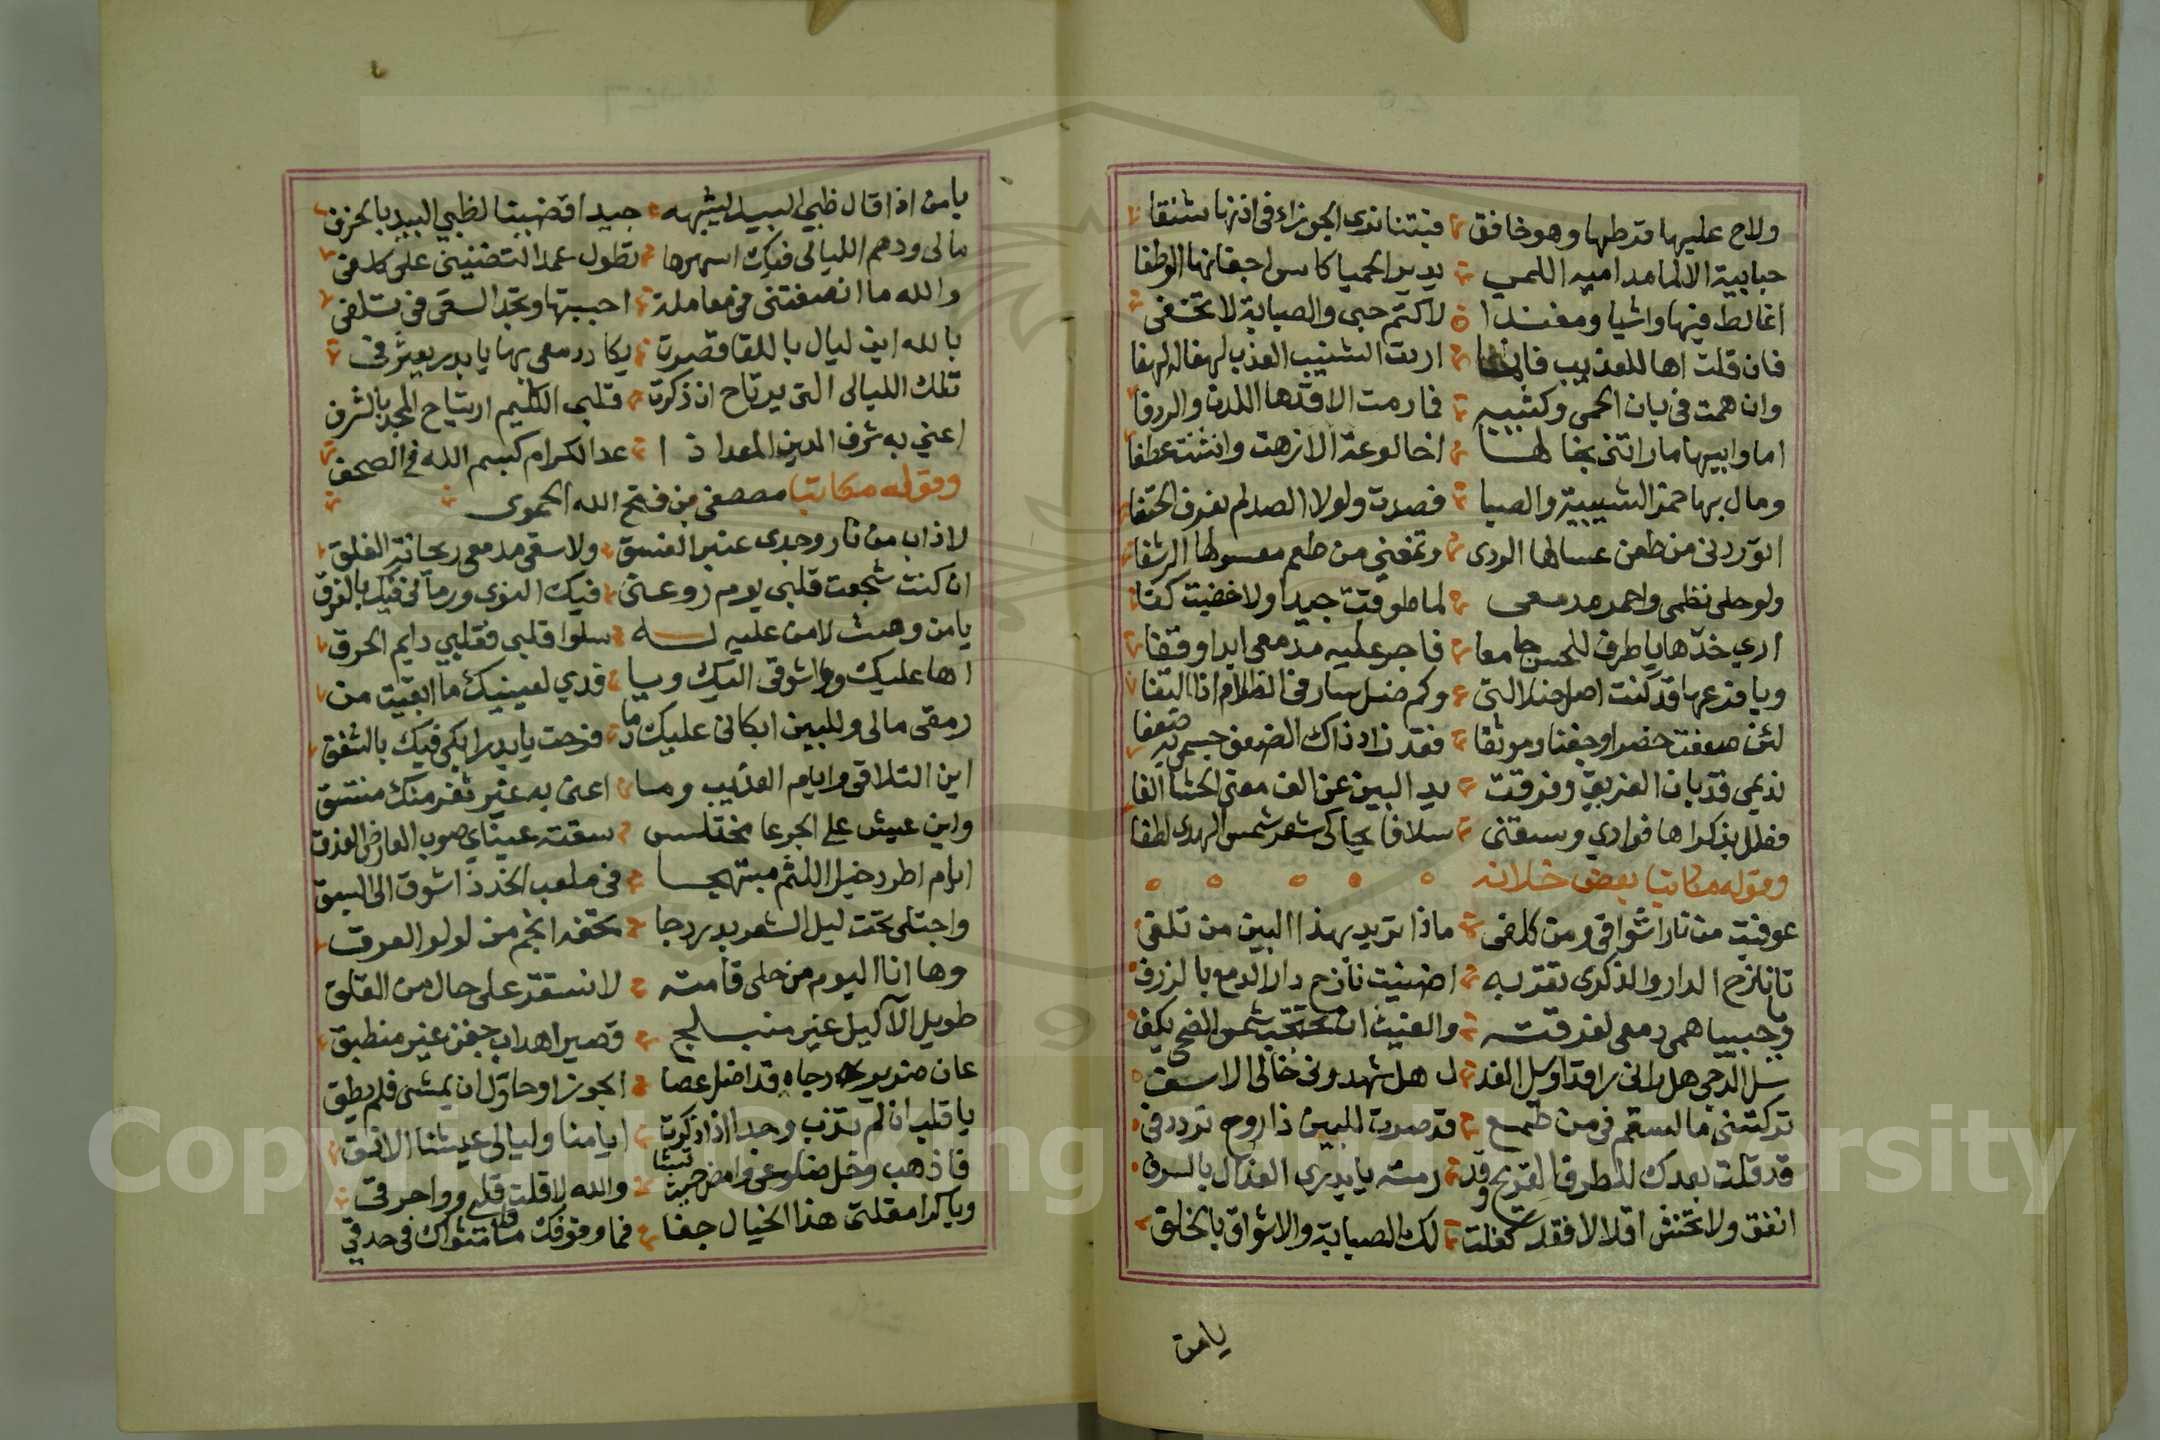 ولاح عليها قرطها وهو خافق فبتنا نرى الجوزاء في اذنها شنقا
حبابية الالما مدامية اللمي يدير الحميا كاس اجفانها الوطفا
اغالط فيها واشيا ومفندا لاكتم حبي والصبابة لا تخفى
فان قلت اها للعذيب فانما اردت الشنيب العذب لهفا له لهفا
وان همت في بان الحمى وكثيبه فما رمت الا قدها اللدن والردفا
اما وابيها ما راتني بخالها اخا لوعة الا زهت وانثنت عطفا
ومال بها خمر الشبيبة والصبا فصدت ولولا الصد لم نعرف الحتفا
اتوردني من طعن عسالها الردى وتمنعني من طعم معسولها الرشفا
ولو حلى نظمى واحمر مدمعى لما طوقت جيدا ولا خضبت كفا
ارى خدها يا طرف للحسن جامعا فاجر عليه مدمعى ابدا وقفا
ويا فرعها قد كنت اصل ضلالتى وكم ضل سار في الظلام اذا التفا
لئن ضعفت خصرا وجفنا وموثقا فقد زاد ذاك الضعف جسمي به ضعفا
نديمى قد بان الفريق وفرقت يد البين عن الف معنى الحشا الفا
فعلل بذكراها فوادي وسقنى سلافا يحاكى شعر شمس الهدى لطفا
وقوله مكاتبا بعض خلانه
عوفيت من نار اشواقى ومن كلفى ماذا تريد بهذا البين من تلفى
يا نازح الدار والذكرى تقربه اضنيت نازح دار الدمع بالزرف
وحبيبا همى دمعى لفرقته والغيث ان تحتجب شمس الضحى يكف
سل الدجى هل رانى راقدا وسل الغد ل هل شهدونى خالى الاسف
تركتنى ما لسقم فى من طمع قد صرت للبين ذا روح تردد في
قد قلت بعدك للطرف القريح وقد رمته يا بدرى العذال بالسرف
انفق ولا تخش اقلالا فقد كفلت لك الصبابة والاشواق بالخلف
يا من
يا من اذا قال ظبي البيد ليشبهه جيدا قضينا لظبي البيد بالخرف
مالى ودهم الليالى فيك اسهرها تطول عمدا لتضنينى على كلفى
والله ما انصفتنى في معاملة احببتها وتجد السقى في تلفى
بالله اين ليال باللقا قصرت يكاد دمعى بها يا بدر يعثر فى
تلك الليالى التى يرتاح ان ذكرت قلبى الكليم ارتياح المجد بالشرف
اعني به شرف الدين المعد اذا عد الكرام كبسم الله في الصحف
وقوله مكاتبا مصطفى بن فتح الله الحموى
لا ذاب من نار وجدى عنبر الغسق ولا سقى مدمعى ريحانة الفلق
ان كنت شجعت قلبى يوم روعنى فيك النوى ورمانى فيك بالفرق
يا من وهبت لامن عليه له سلوا قلبى فقلبي دايم الحرق
اها عليك وواشوقى اليك ويا فدي لعينيك ما ابقيت من
رمقى مالى وللبين ابكانى عليك دما فرحت يا بدر ابكى فيك بالشفق
اين التلاقى وايام العذيب وما اعنى به غير ثغر منك منتسق
واين عيش على الجرعا مختلس سقته عيناي صوب العارض الغدق
ايام اطرد خيل اللثم مبتهجا فى ملعب الخد ذا شوق الى السبق
واجتلى تحت ليل الشعر بدر دجا تحفه انجم من لولو العرق
وها انا اليوم من حلى قامته لا نستقر على حال من القلق
طويل الا كليل غير منبلج قصير اهداب جفن غير منطبق
عان ضرير دجاه قد اضل عصا الجوزا وحاول ان يمشى فلم يطق
يا قلب ان لم تذب وجدا اذا ذكرت ايامنا وليالى عيشنا الانق
فاذهب وخل ضلوعى وامض حيث تشا والله لا قلت قلبى وواحرقى
ويا كرا مقلتى هذا الخيال جفا فما وقوفك ما مثواك فى حدقي